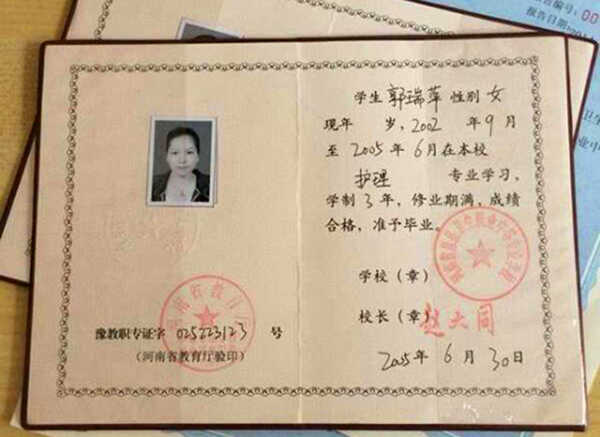 报告编号:00
报告日期
学生 郭瑞萍 性别 女
现年 岁,2002 年9月
至 2005年 6月在本校
护理 专业学习,
学制3年,修业期满,成绩
合格,准予毕业。
学校(章)
校长(章) 赵大同
2005年 6 月 30日
河南省教育厅
豫教职专证字 025223123 号
(河南省教育厅验印)